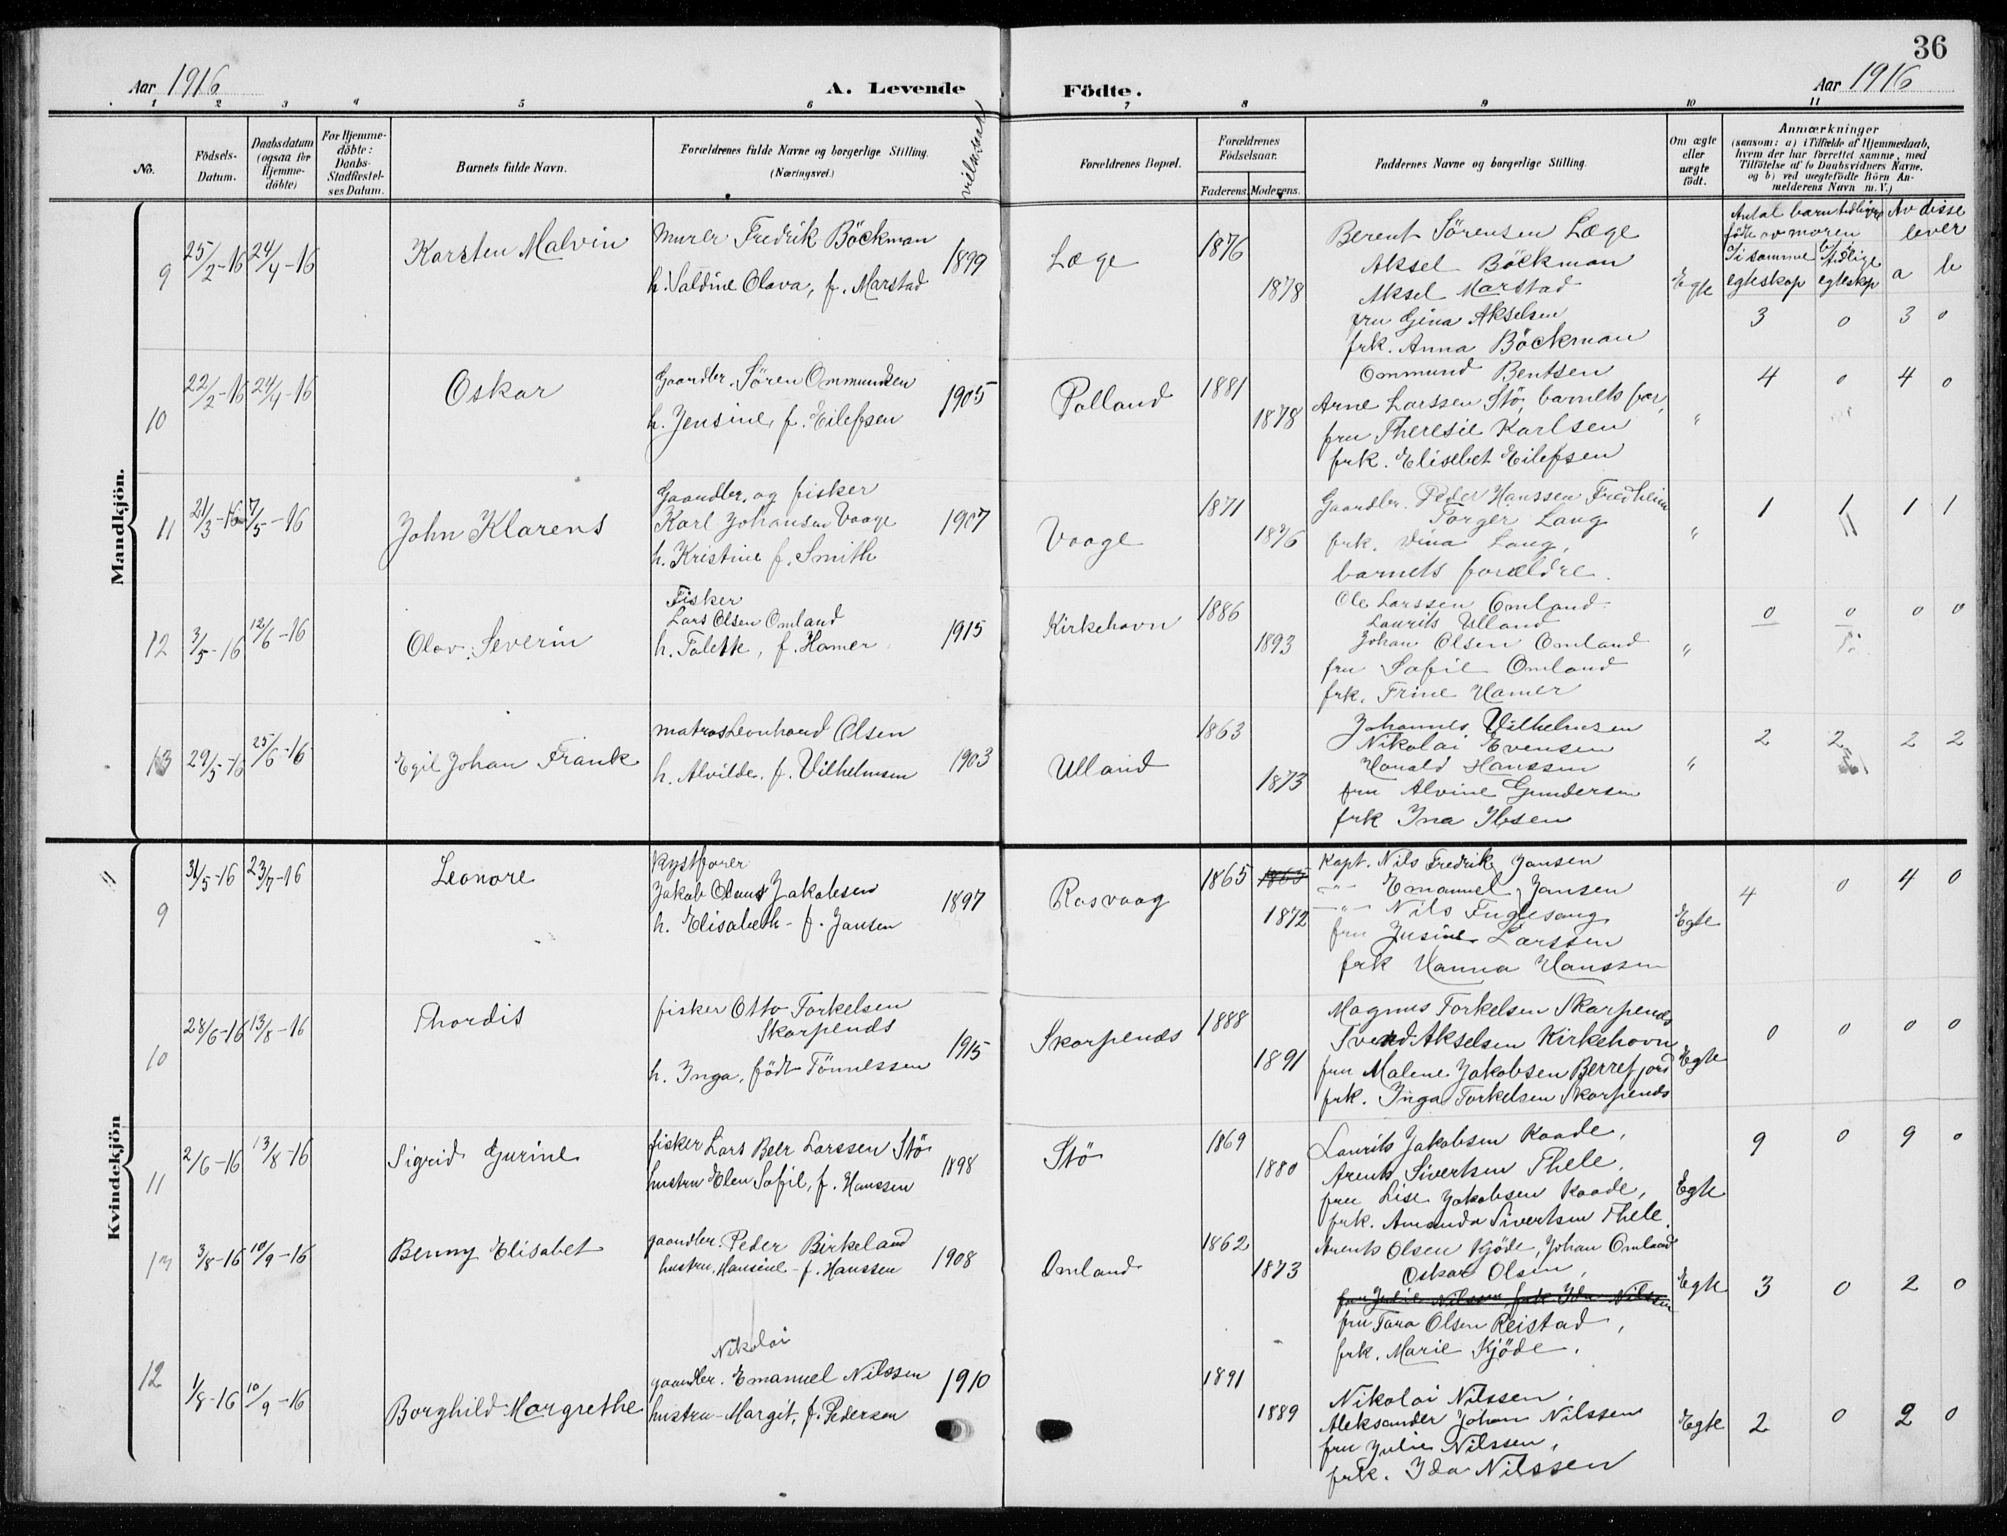 36
Aar 1916 A. Levende Födte. Aar 1916
1 2 3 4 5 6 7 8 9 10 11
No. Födsels-Datum. Daabsdatum (ogsaa for Hjemme-döbte) For Hjemme-döbte: Daabs-Stadfæstel-ses Datum. Barnets fulde Navn. Forældrenes fulde Navne og borgerlige Stilling. (Næringsvei.) vielsesaar Forældrenes Bopæl. Forældrenes Födselsaar. Faderens. Moderens. Faddernes Navne og borgerlige Stilling. Om ægte eller uægte födt. Anmærkninger (saasom: a) i Tilfælde af Hjemmedaab, hvem der har forrettet samme, med Tilföielse af to Daabsvidners Navne, og b) ved uægtefödte Börn An-melderens Navn m. V.)
Antal barn tidligere födt av moren Av disse lever
a/ i samme egteskap b/ i tidlige egteskap a b
Mandkjön.
9 25/2-16 24/4-16 Karsten Malvin Murer Fredrik Böckman 1899 Læge 1876 Berent Sörensen Læge
h. Valdine Olava, f. Marstad 1878 Aksel Böckman Egte
Aksel Marstad
fru Gina Akselsen 3 0 3 0
frk. Anna Böckman
10 22/2-16 24/4-16 Oskar Gaardbr. Sören Ommundsen 1905 Polland 1881 Ommund Bentsen 4 0 4 0
h. Jensine, f. Eilefsen 1878 Arne Larssen Stö, barnets far, "
fru Theresie Karlsen
frk. Elisebet Eilefsen
11 21/3-16 7/5-16 John Klarens Gaardbr. og fisker 1907 Vaage 1871 Gaardbr. Peder Hanssen Fredheim 1 1 1 1
Karl Johansen Vaage 1876 Torger Laug "
h. Kristine f. Smith frk. Dina Laug,
barnets forældre.
12 3/5-16 12/6-16 Olav Severin Fisker 1915 Kirkehavn 1886 Ole Larssen Omland 0 0 0 0
Lars Olsen Omland Laurits Ulland
h. Talette, f. Hamer 1893 Johan Olsen Omland "
fru Sofie Omland
frk. Trine Hamer
13 29/5-16 25/6-16 Egil Johan Frank matros Leonhard Olsen 1903 Ulland 1863 Johannes Vilhelmsen 2 2 2 2
h. Alvilde f. Vilhelmsen 1873 Nikolai Evensen "
Harald Hanssen
fru Alvine Gundersen
frk Ina Ibsen
Kvindekjön
9 31/5-16 23/7-16 Leonore Kystfarer 1897 Rasvaag 1865 1865 Kapt. Nils Fredrik Jansen 4 0 4 0
Jakob Olaus Jakobsen 1872 -"- Emanuel Jansen Egte
h. Elisabeth - f. Jansen -"- Nils Fuglesang
fru Jusine Larssen
frk Hanna Hanssen
10 28/6-16 13/8-16 Thordis fisker Otto Torkelsen 1915 Skarpenes 1888 Magnus Torkelsen Skarpenes 0 0 0 0
Skarpenes 1891 Svend Akselsen Kirkehavn Egte
h. Inga, födt Tönnessen fru Malene Jakobsen Berrefjord
frk. Inga Torkelsen Skarpenes
11 2/6-16 13/8-16 Sigrid Gurine fisker Lars Beer Larssen Stö 1898 Stö 1869 Laurits Jakobsen Raade, 9 0 9 0
hustru Elen Sofie, f. Hanssen 1880 Arents Sivertsen Thele, Egte
fru Lise Jakobsen Raade,
frk. Amanda Sivertsen Thele
13 3/8-16 10/9-16 Benny Elisabet gaardbr. Peder Birkeland 1908 Omland 1862 Arents Olsen Kjöde, Johan Omland
hustru Hansine - f. Hanssen 1873 Oskar Olsen, Egte 3 0 2 0
fru Julie Nilssen frk Ida Nilssen
fru Tara Olsen Reistad,
frk. Marie Kjöde.
12 1/8-16 10/9-16 Borghild Margrethe Nikolai
gaardbr. Emanuel Nilssen 1910 1891 Nikolai Nilssen,
hustru Margit, f. Pedersen 1889 Aleksander Johan Nilssen Egte 2 0 2 0
fru Julie Nilssen,
frk. Ida Nilssen